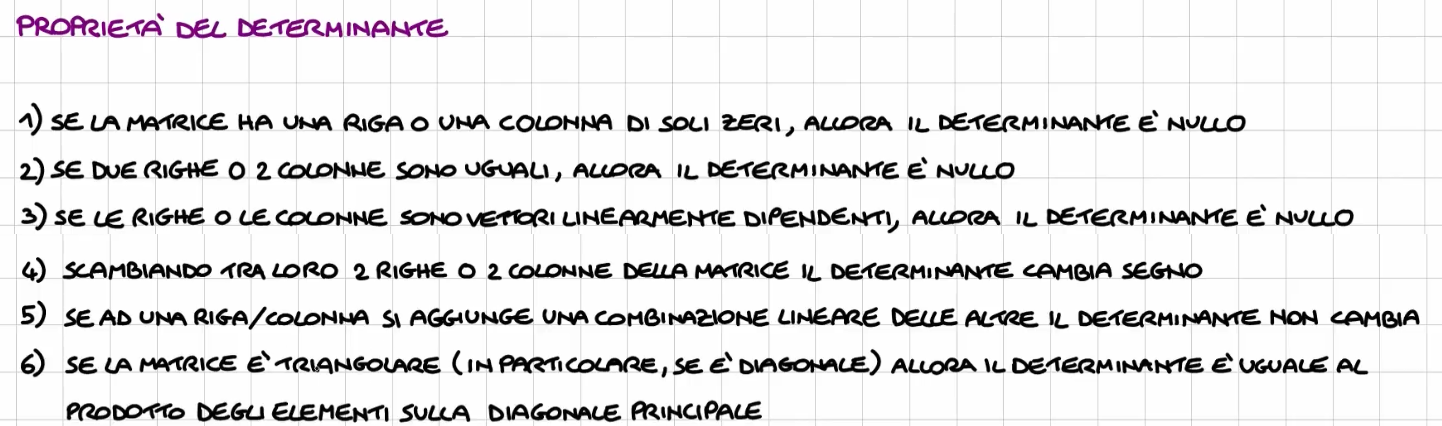 PROPRIETÀ DEL DETERMINANTE
1) SE LA MATRICE HA UNA RIGA O UNA COLONNA DI SOLI ZERI, ALLORA IL DETERMINANTE E' NULLO
2) SE DUE RIGHE O 2 COLONNE SONO UGUALI, ALLORA IL DETERMINANTE E' NULLO
3) SE LE RIGHE O LE COLONNE SONO VETTORI LINEARMENTE DIPENDENTI, ALLORA IL DETERMINANTE E' NULLO
4) SCAMBIANDO TRA LORO 2 RIGHE O 2 COLONNE DELLA MATRICE IL DETERMINANTE CAMBIA SEGNO
5) SE AD UNA RIGA/COLONNA SI AGGIUNGE UNA COMBINAZIONE LINEARE DELLE ALTRE IL DETERMINANTE NON CAMBIA
6) SE LA MATRICE E' TRIANGOLARE (IN PARTICOLARE, SE E' DIAGONALE) ALLORA IL DETERMINANTE E' UGUALE AL
PRODOTTO DEGLI ELEMENTI SULLA DIAGONALE PRINCIPALE